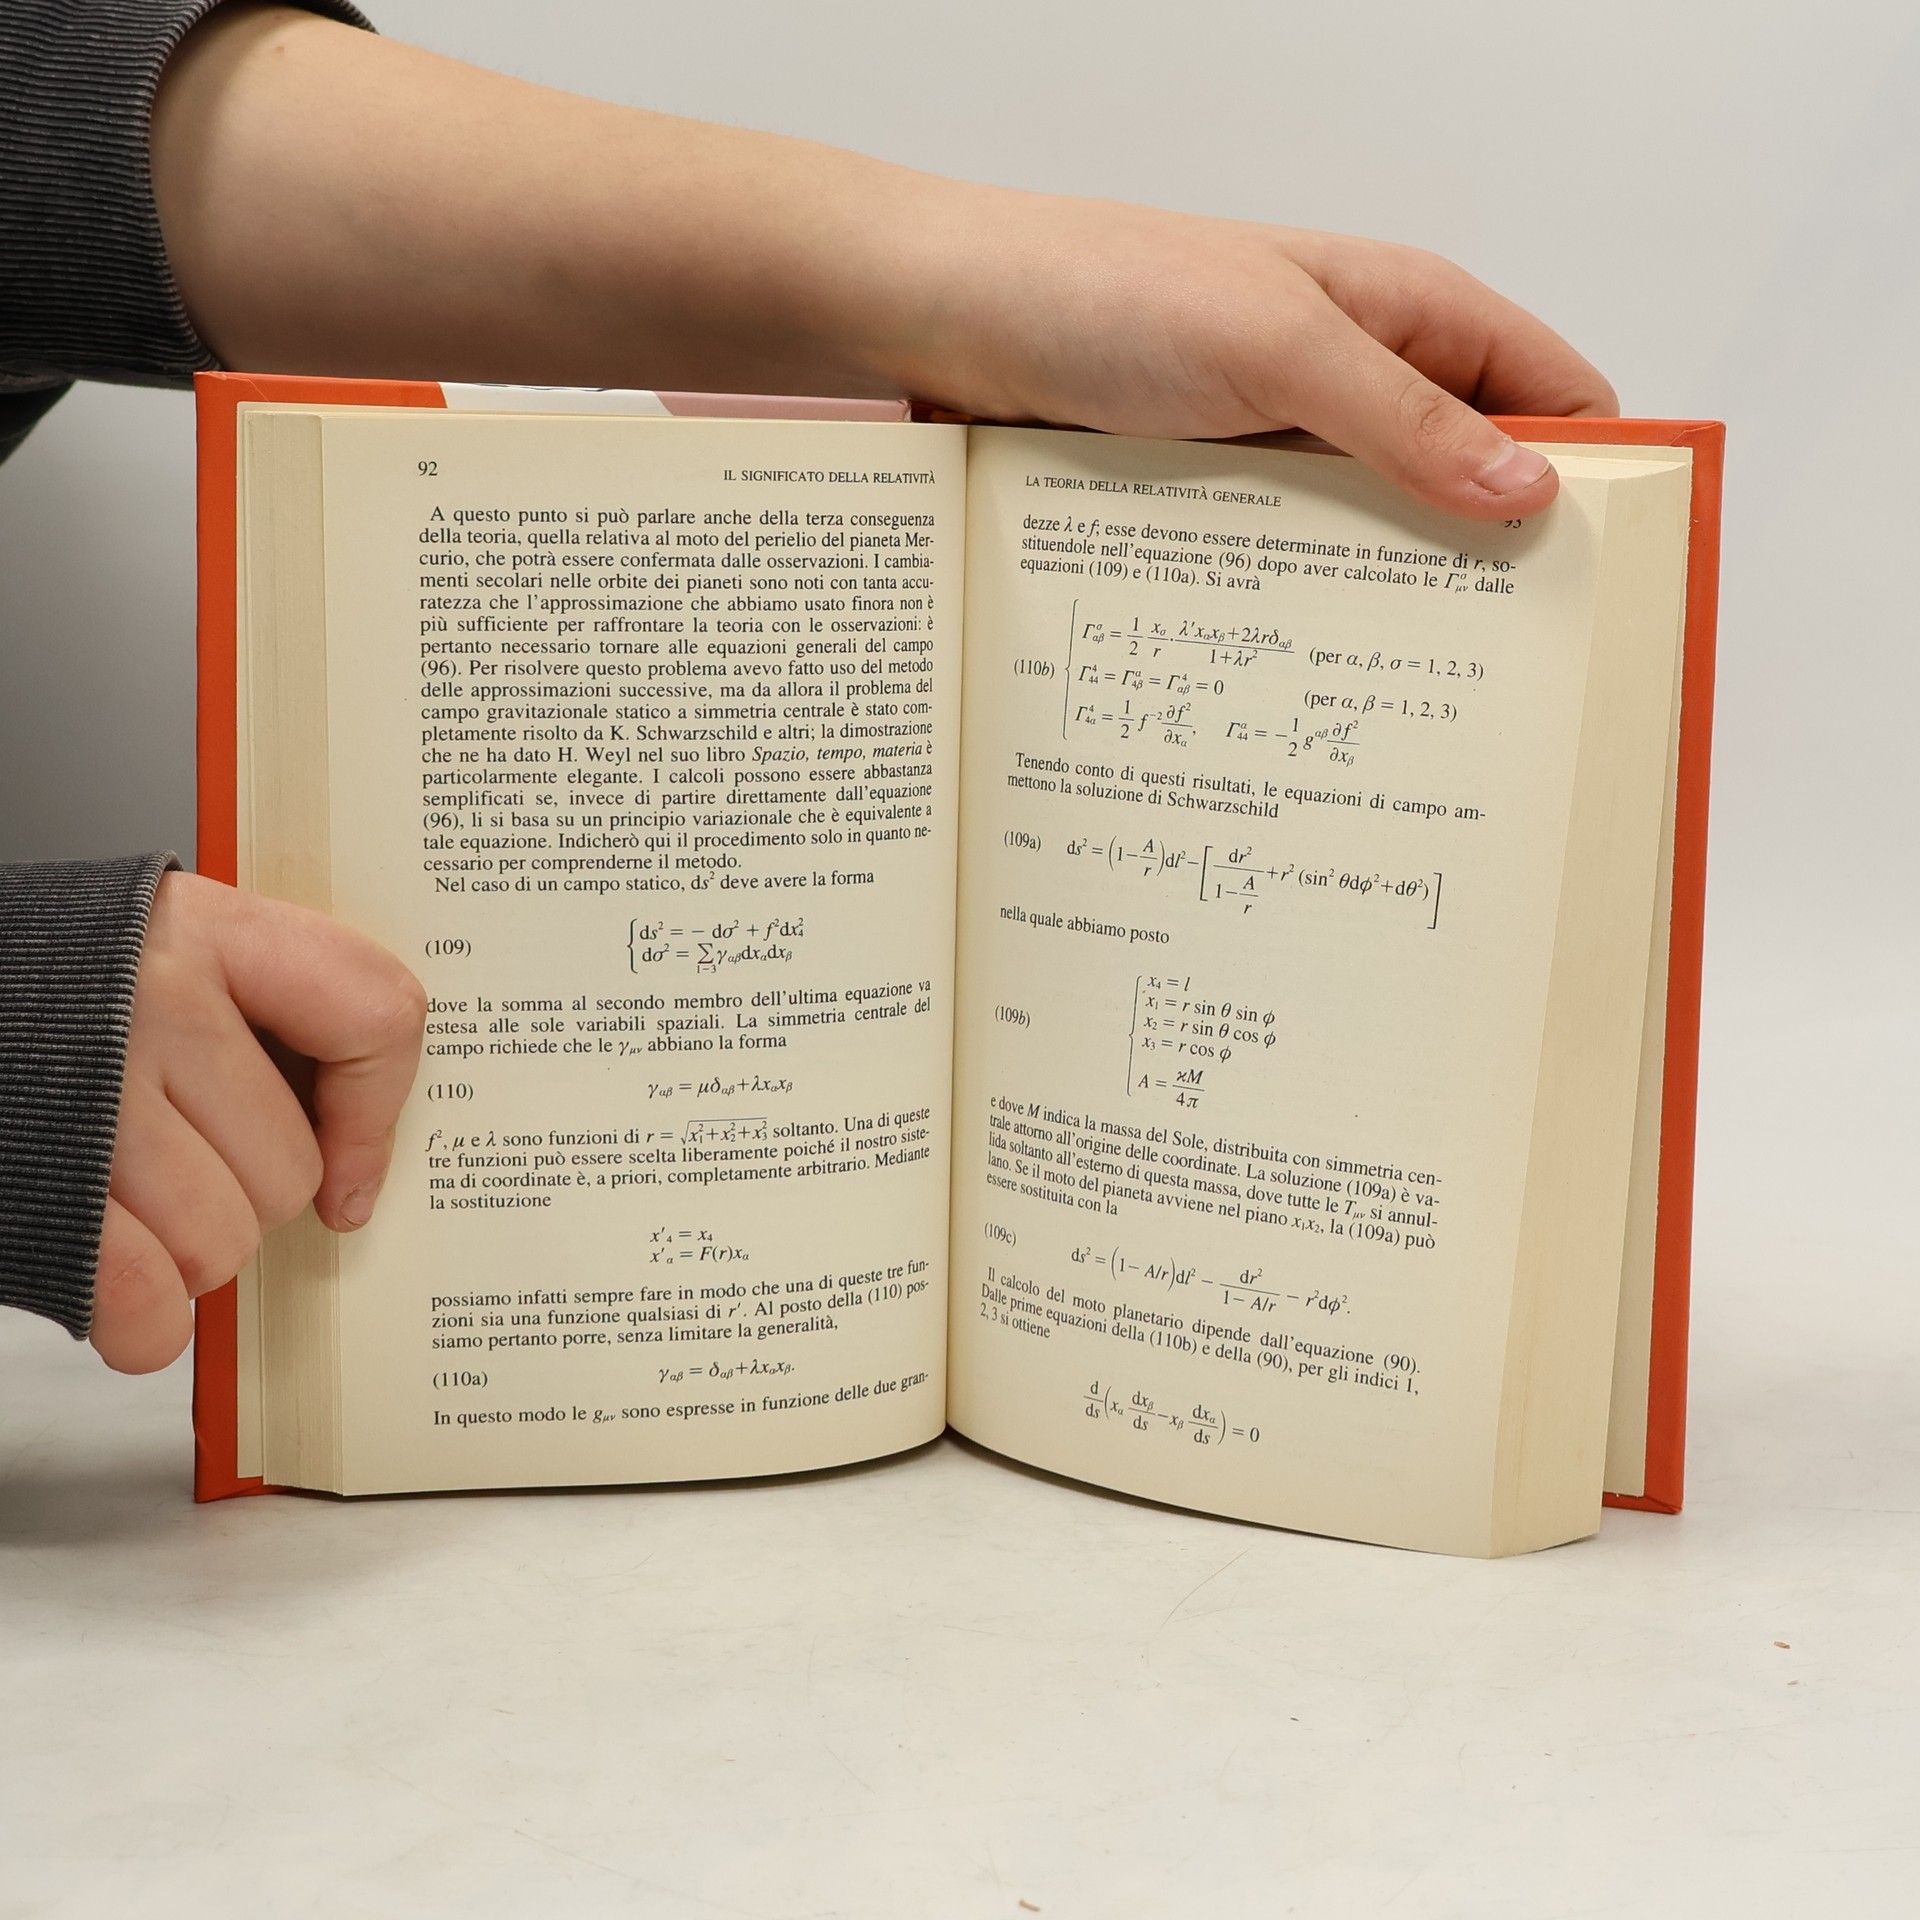 92
IL SIGNIFICATO DELLA RELATIVITÀ
A questo punto si può parlare anche della terza conseguenza
della teoria, quella relativa al moto del perielio del pianeta Mer-
curio, che potrà essere confermata dalle osservazioni. I cambia-
menti secolari nelle orbite dei pianeti sono noti con tanta accu-
ratezza che l'approssimazione che abbiamo usato finora non è
più sufficiente per raffrontare la teoria con le osservazioni: è
pertanto necessario tornare alle equazioni generali del campo
(96). Per risolvere questo problema avevo fatto uso del metodo
delle approssimazioni successive, ma da allora il problema del
campo gravitazionale statico a simmetria centrale è stato com-
pletamente risolto da K. Schwarzschild e altri; la dimostrazione
che ne ha dato H. Weyl nel suo libro Spazio, tempo, materia è
particolarmente elegante. I calcoli possono essere abbastanza
semplificati se, invece di partire direttamente dall'equazione
(96), li si basa su un principio variazionale che è equivalente a
tale equazione. Indicherò qui il procedimento solo in quanto ne-
cessario per comprenderne il metodo.
Nel caso di un campo statico, ds² deve avere la forma
(109) { ds² = − dσ² + f²dx₄²
dσ² = Σ₁₋₃ γ_αβ dx_α dx_β
dove la somma al secondo membro dell'ultima equazione va
estesa alle sole variabili spaziali. La simmetria centrale del
campo richiede che le γ_μν abbiano la forma
(110) γ_αβ = μδ_αβ+λx_αx_β
f², μ e λ sono funzioni di r = √(x₁²+x₂²+x₃²) soltanto. Una di queste
tre funzioni può essere scelta liberamente poiché il nostro siste-
ma di coordinate è, a priori, completamente arbitrario. Mediante
la sostituzione
x'₄ = x₄
x'_α = F(r)x_α
possiamo infatti sempre fare in modo che una di queste tre fun-
zioni sia una funzione qualsiasi di r'. Al posto della (110) pos-
siamo pertanto porre, senza limitare la generalità,
(110a) γ_αβ = δ_αβ+λx_αx_β.
In questo modo le g_μν sono espresse in funzione delle due gran-
LA TEORIA DELLA RELATIVITÀ GENERALE
93
dezze λ e f; esse devono essere determinate in funzione di r, so-
stituendole nell'equazione (96) dopo aver calcolato le Γ^σ_μν dalle
equazioni (109) e (110a). Si avrà
Γ^σ_αβ = 1/2 x_σ/r · (λ'x_αx_β+2λrδ_αβ)/(1+λr²) (per α, β, σ = 1, 2, 3)
(110b) { Γ⁴₄₄ = Γ^α_4β = Γ⁴_αβ = 0 (per α, β = 1, 2, 3)
Γ⁴_4α = 1/2 f⁻² ∂f²/∂x_α, Γ^α_44 = −1/2 g^αβ ∂f²/∂x_β
Tenendo conto di questi risultati, le equazioni di campo am-
mettono la soluzione di Schwarzschild
(109a) ds² = (1−A/r)dl²−[dr²/(1−A/r)+r² (sin² θdϕ²+dθ²)]
nella quale abbiamo posto
x₄ = l
x₁ = r sin θ sin ϕ
(109b) { x₂ = r sin θ cos ϕ
x₃ = r cos ϕ
A = ϰM/4π
e dove M indica la massa del Sole, distribuita con simmetria cen-
trale attorno all'origine delle coordinate. La soluzione (109a) è va-
lida soltanto all'esterno di questa massa, dove tutte le T_μν si annul-
lano. Se il moto del pianeta avviene nel piano x₁x₂, la (109a) può
essere sostituita con la
(109c) ds² = (1− A/r)dl² − dr²/(1− A/r) − r²dϕ².
Il calcolo del moto planetario dipende dall'equazione (90).
Dalle prime equazioni della (110b) e della (90), per gli indici 1,
2, 3 si ottiene
d/ds (x_α dx_β/ds − x_β dx_α/ds) = 0